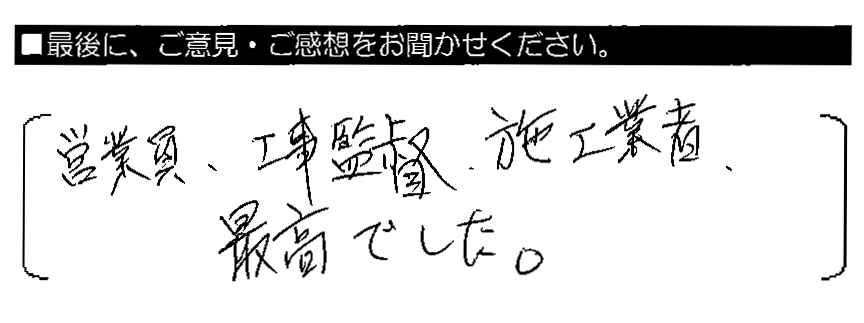 ■最後に、ご意見・ご感想をお聞かせください。
営業員、工事監督、施工業者、
最高でした。